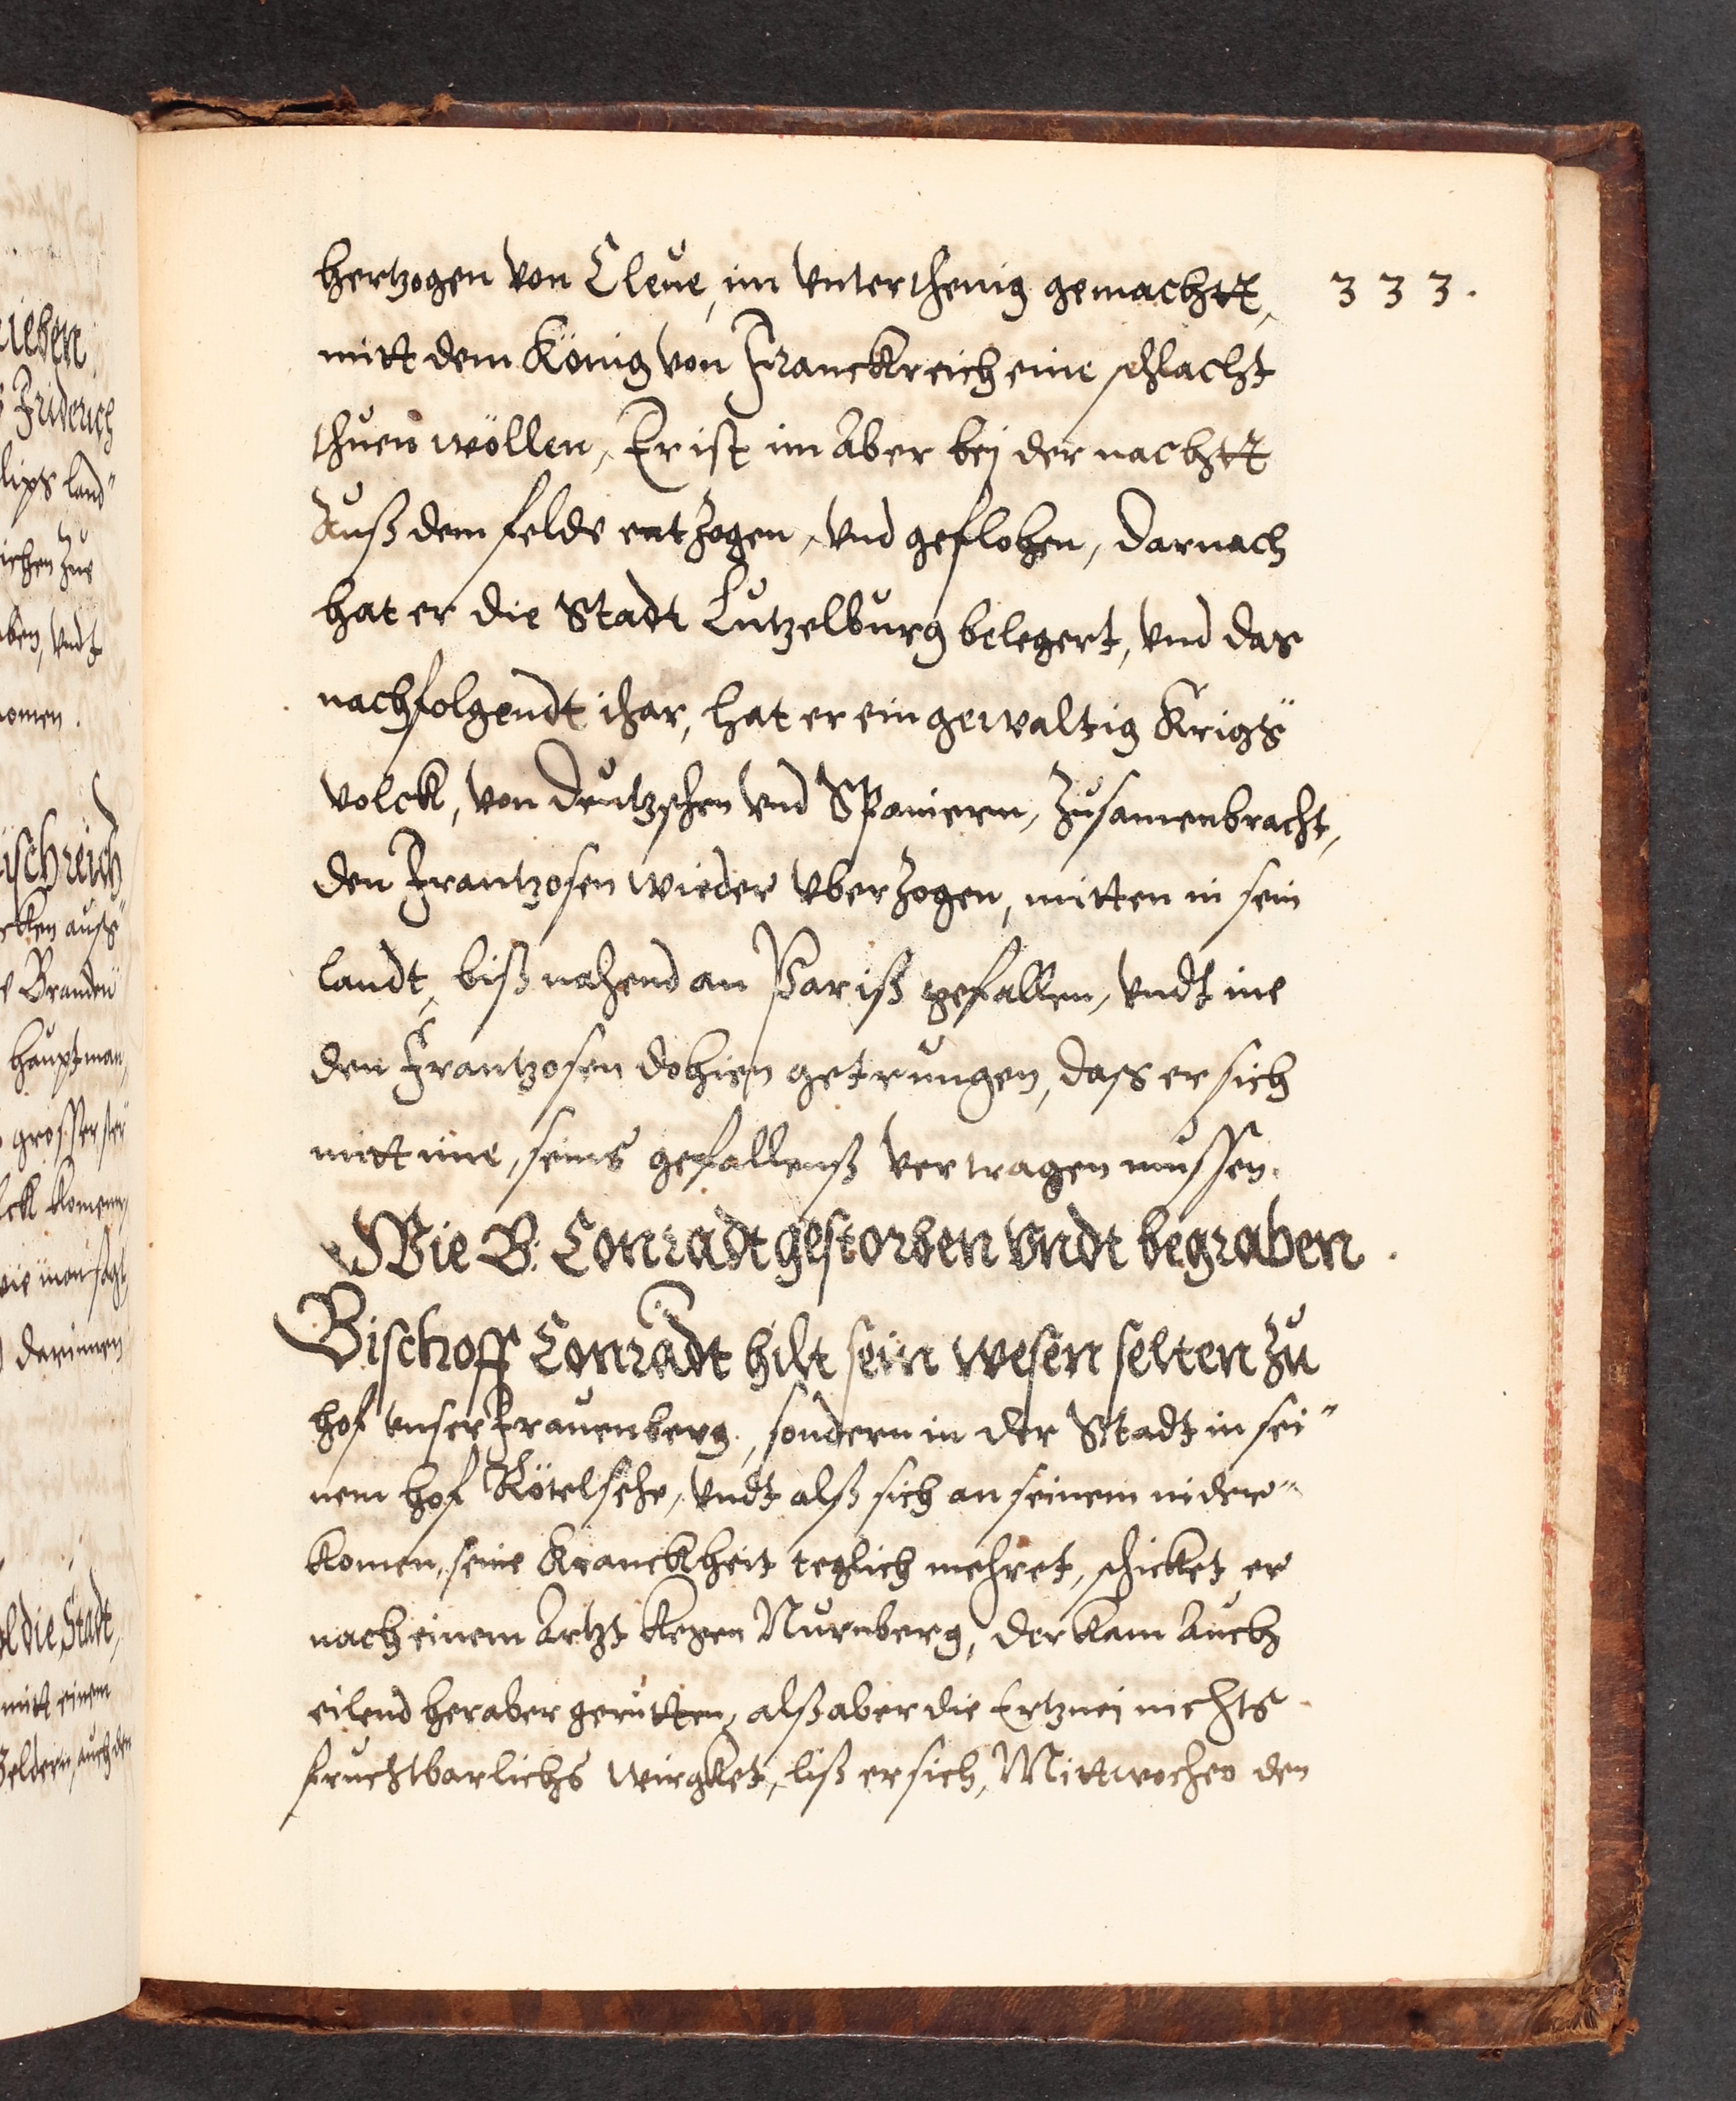 hertzogen von Cleue, im vnterthenig gemachtt, 333.
mitt dem König von Franckreich eine schlacht
thuen wöllen, Er ist im aber bej der nachtt
auß dem felde entzogen, vnd geflohen, darnach
hat er die Stadt Lutzelburg belegert, vnd das
nachfolgendt ihar, hat er ein gewaltig Krigs"
volck, von deutzschen vnd Spaniern, zusamenbracht,
den Frantzosen wieder vberzogen, mitten in sein
landt, biß nahend an Pariß gefallen, vndt ine
den Frantzosen dohien getrungen, dass er sich
mitt ime, seins gefallenß vertragen mussen.
Wie B. Conradt gestorben vndt begraben.
Bischoff Conradt hilt sein wesen selten zu
hof vnser Frauenberg, sondern in der Stadt in sei"
nem hof Rötelsehe, vndt alß sich an seinem nider"
komen, seine Kranckheit teglich mehret, schicket er
nach einem Artzt kegen Nurnberg, der kam auch
eilend heraber gerutten, alß aber die Ertznei nichts
fruchtbarlichs wirgket, liß er sich, Mittwochen den